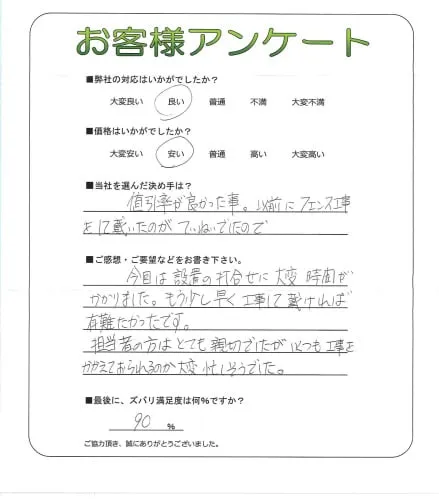 お客様アンケート
■弊社の対応はいかがでしたか?
大変良い 良い 普通 不満 大変不満
■価格はいかがでしたか?
大変安い 安い 普通 高い 大変高い
■当社を選んだ決め手は?
値引率が良かった事。以前にフェンス工事
をして戴いたのがていねいでしたので
■ご感想・ご要望などをお書き下さい。
今回は設置の打合せに大変時間が
かかりました。もう少し早く工事して戴ければ
有難たかったです。
担当者の方はとても親切でしたがいつも工事を
かかえておられるのか大変忙しそうでした。
■最後に、ズバリ満足度は何%ですか?
90 %
ご協力頂き、誠にありがとうございました。